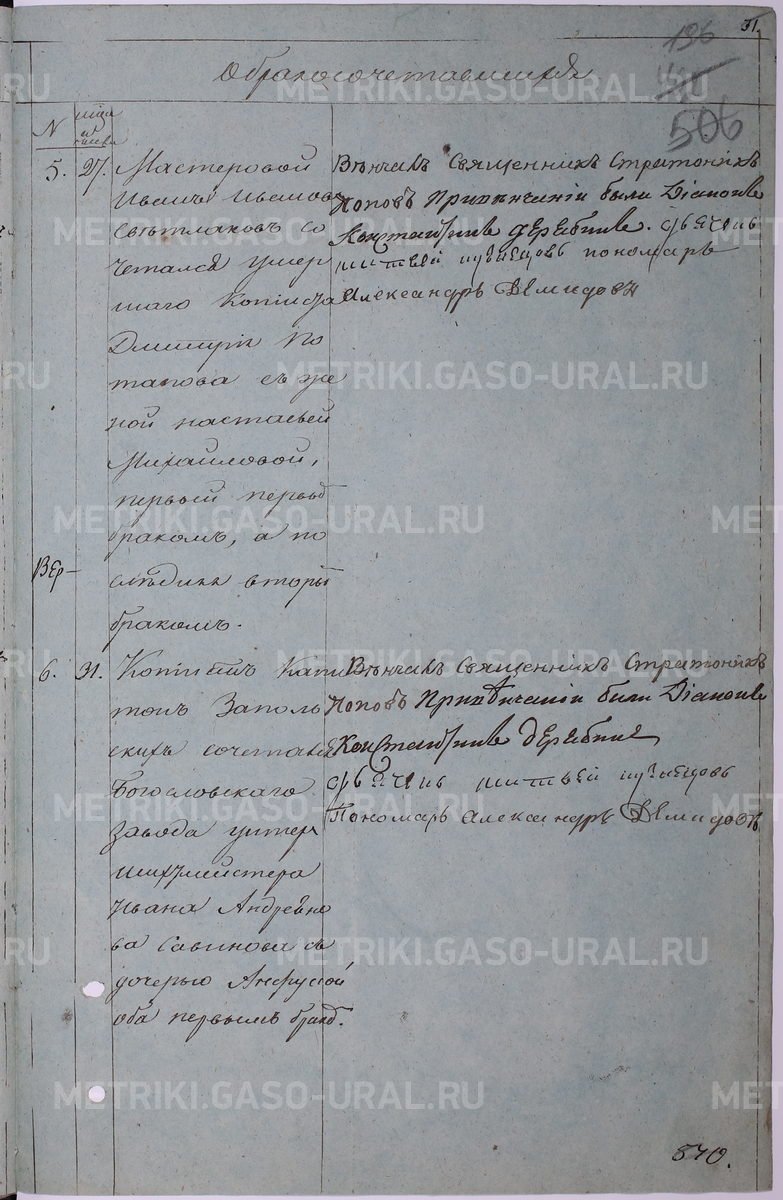 31.
196
506
Обракосочетавшихся
N
5. 27. Мастеровой
Иванъ Иванов
Светлаковъ со
четался умер
шаго Кописта
Димитрія По
танова съ же
ной Настасьей
Михайловой,
первый первы
бракомъ, а по
следняя вторы
бракомъ.
Вѣнчалъ Священникъ Стратоникъ
Поповъ При венчаніи были Діаконъ
Константинъ дерябинъ.
пономарь
Александръ Демидовъ
Вер
6. 31. Копіистъ Капи
тонъ Заполь
скихъ сочетался
Богословскаго
завода унтер
шихтмейстера
Ивана Андреено
ва Савинова съ
дочерью Анфусой
оба первымъ брако.
Вѣнчалъ Священникъ Стратоникъ
Поповъ При венчаніи были Діаконъ
Константинъ дерябинъ
Пономарь Александръ Демидовъ
840.
METRIKI.GASO-URAL.RU